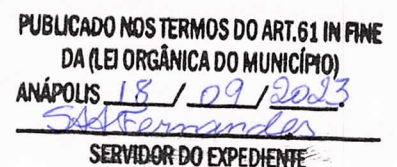 PUBLICADO NOS TERMOS DO ART.61 IN FINE
DA (LEI ORGÂNICA DO MUNICÍPIO)
ANÁPOLIS 18 / 09 / 2023.
SAAFernandes
SERVIDOR DO EXPEDIENTE